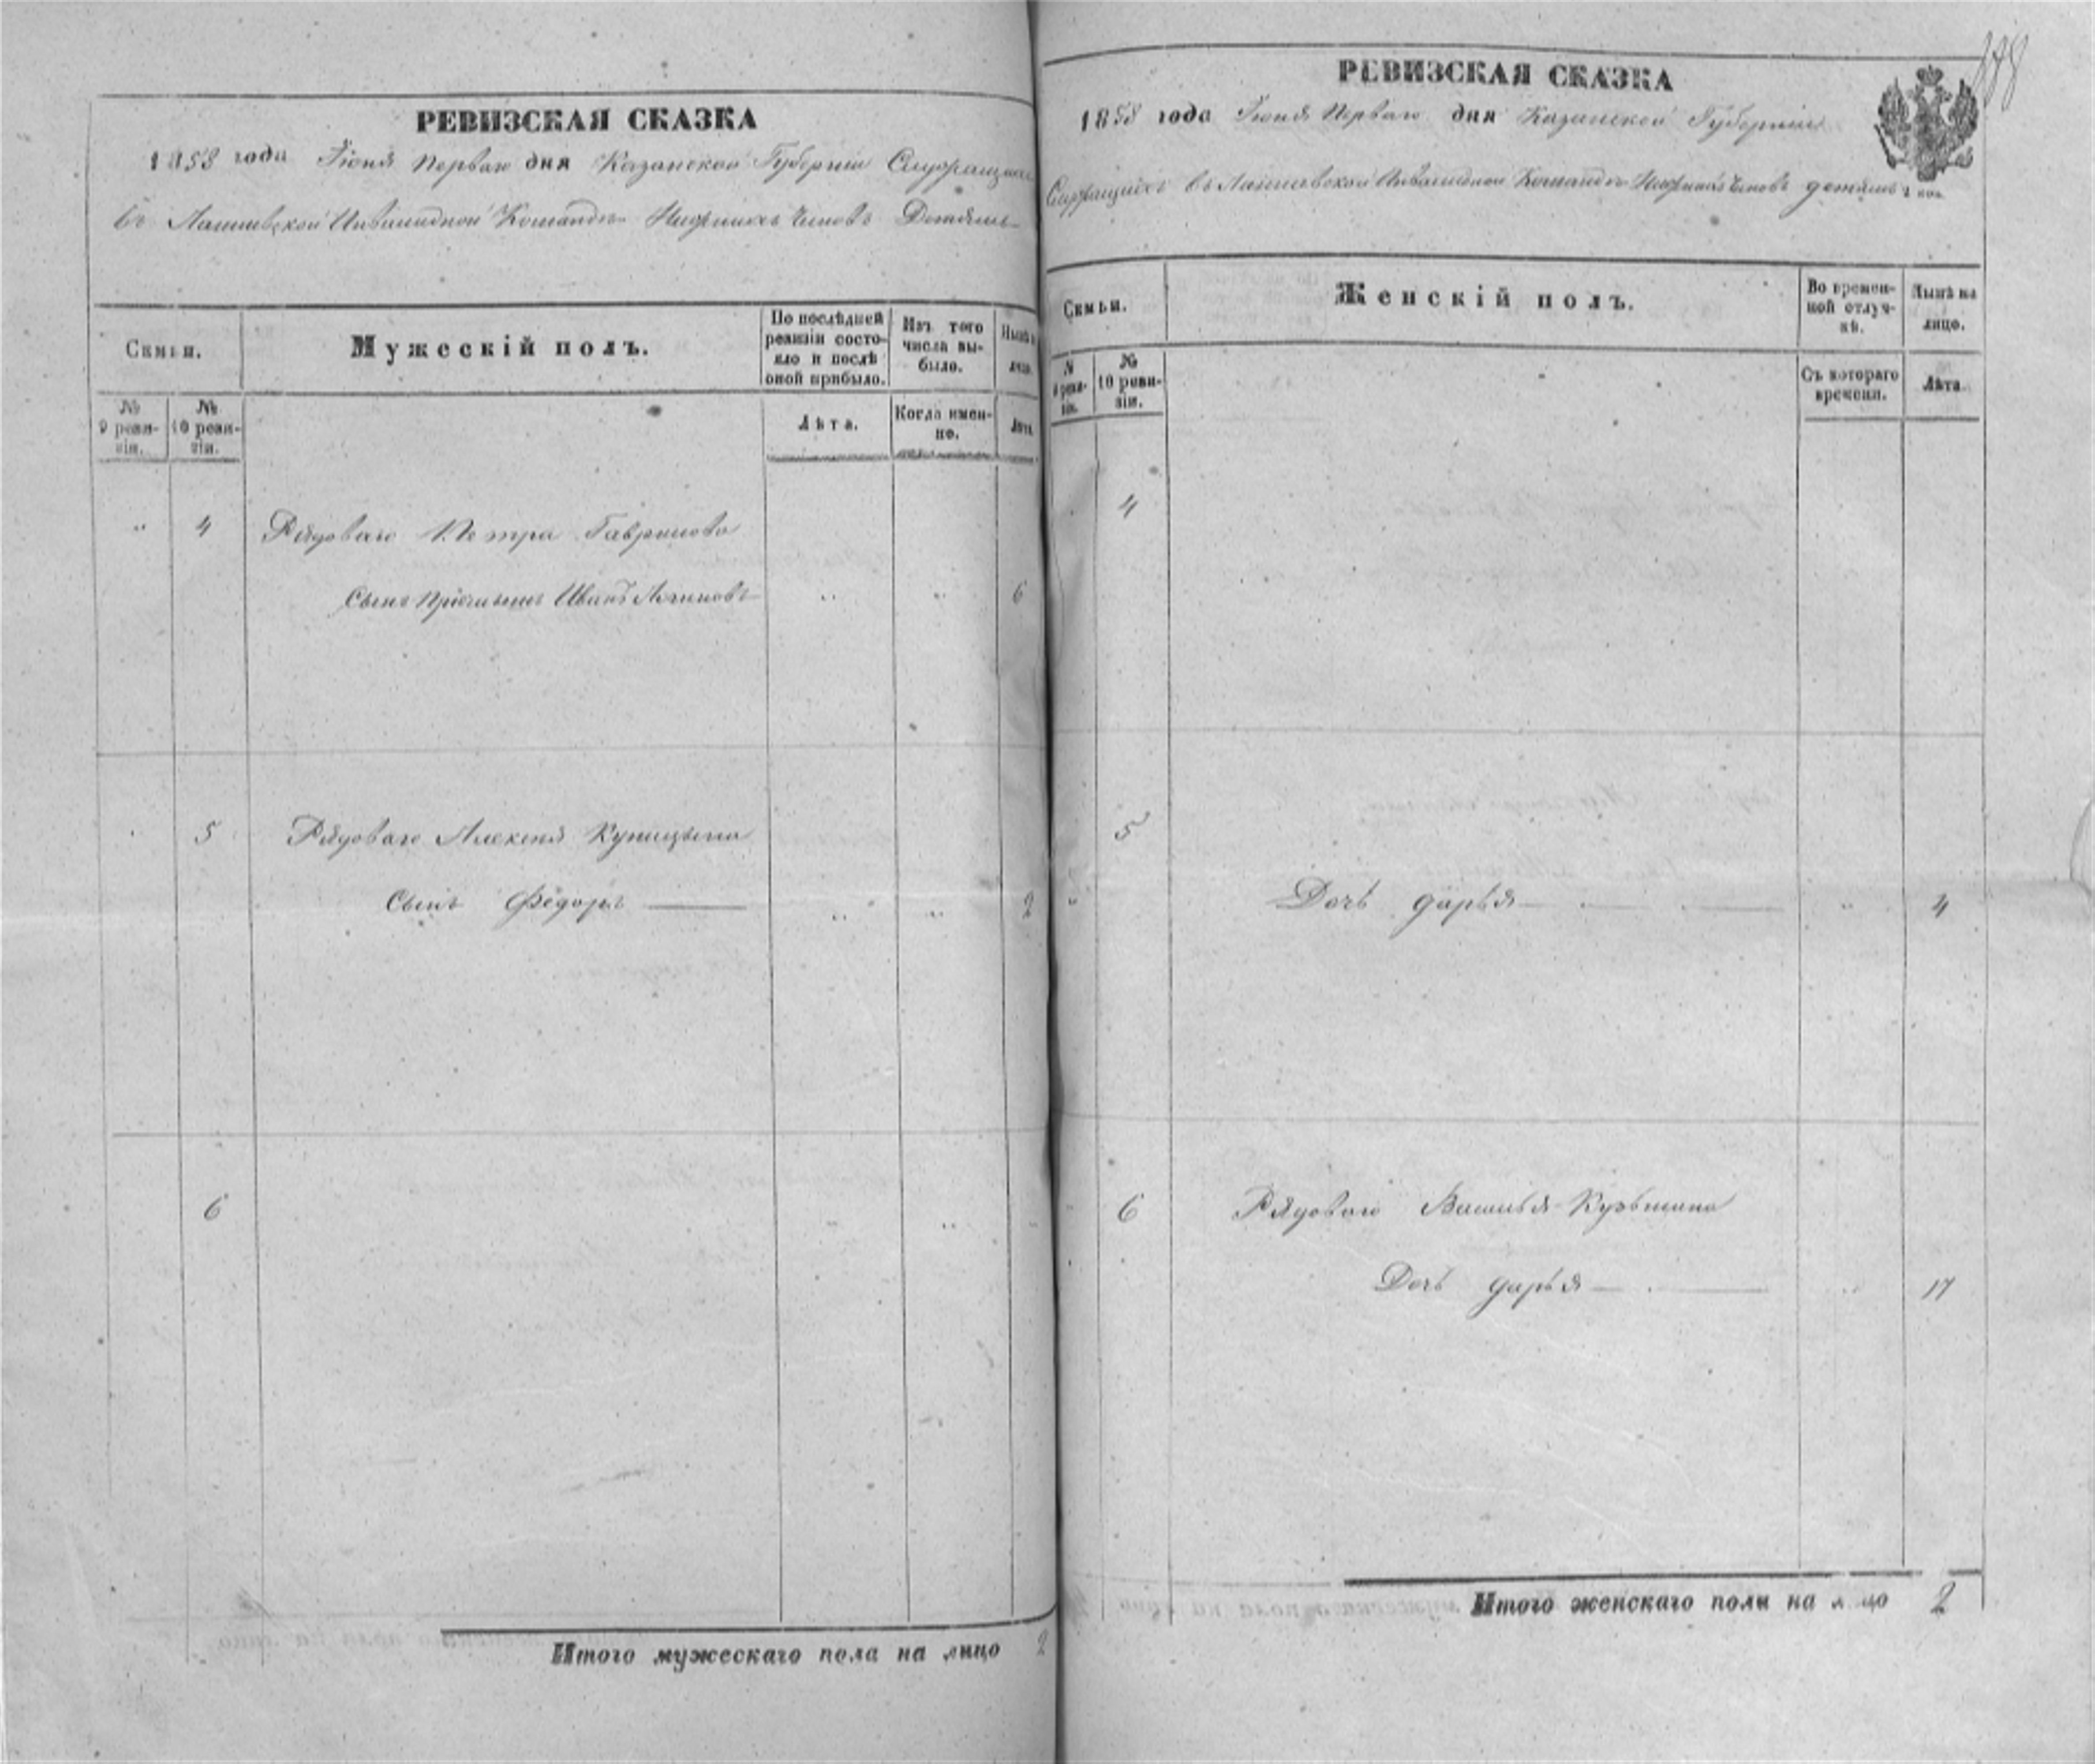 РЕВИЗСКАЯ СКАЗКА
1858 года Іюня Перваго дня Казанской Губерніи Служащихъ
въ Лаишевской Инвалидной Командѣ Нижнихъ Чиновъ Дѣтямъ
Семьи.
Мужескій полъ.
По послѣдней ревизіи состояло и послѣ оной прибыло.
Изъ того числа выбыло.
Нынѣ на лицо.
№ 9 ревизіи.
№ 10 ревизіи.
Лѣта.
Когда именно.
Лѣта.
" 4 Рядоваго Петра Гаврилова
Сынъ Пріемышъ Иванъ " " 6
5 Рядоваго Алексея Купицына
Сынъ Федоръ — " " 2
6 " " "
Итого мужескаго пола на лицо 2
РЕВИЗСКАЯ СКАЗКА
1858 года Іюня Перваго дня Казанской Губерніи
Служащихъ въ Лаишевской Инвалидной Командѣ Нижнихъ Чиновъ детямъ
Семьи.
Женскій полъ.
Во временной отлучкѣ.
Нынѣ на лицо.
№ 9 ревизіи.
№ 10 ревизіи.
Съ котораго времени.
Лѣта.
4
5
" Дочь дарья — " 4
6 Рядоваго Василья Кузьмина
Дочь дарья — " 17
Итого женскаго пола на лицо 2